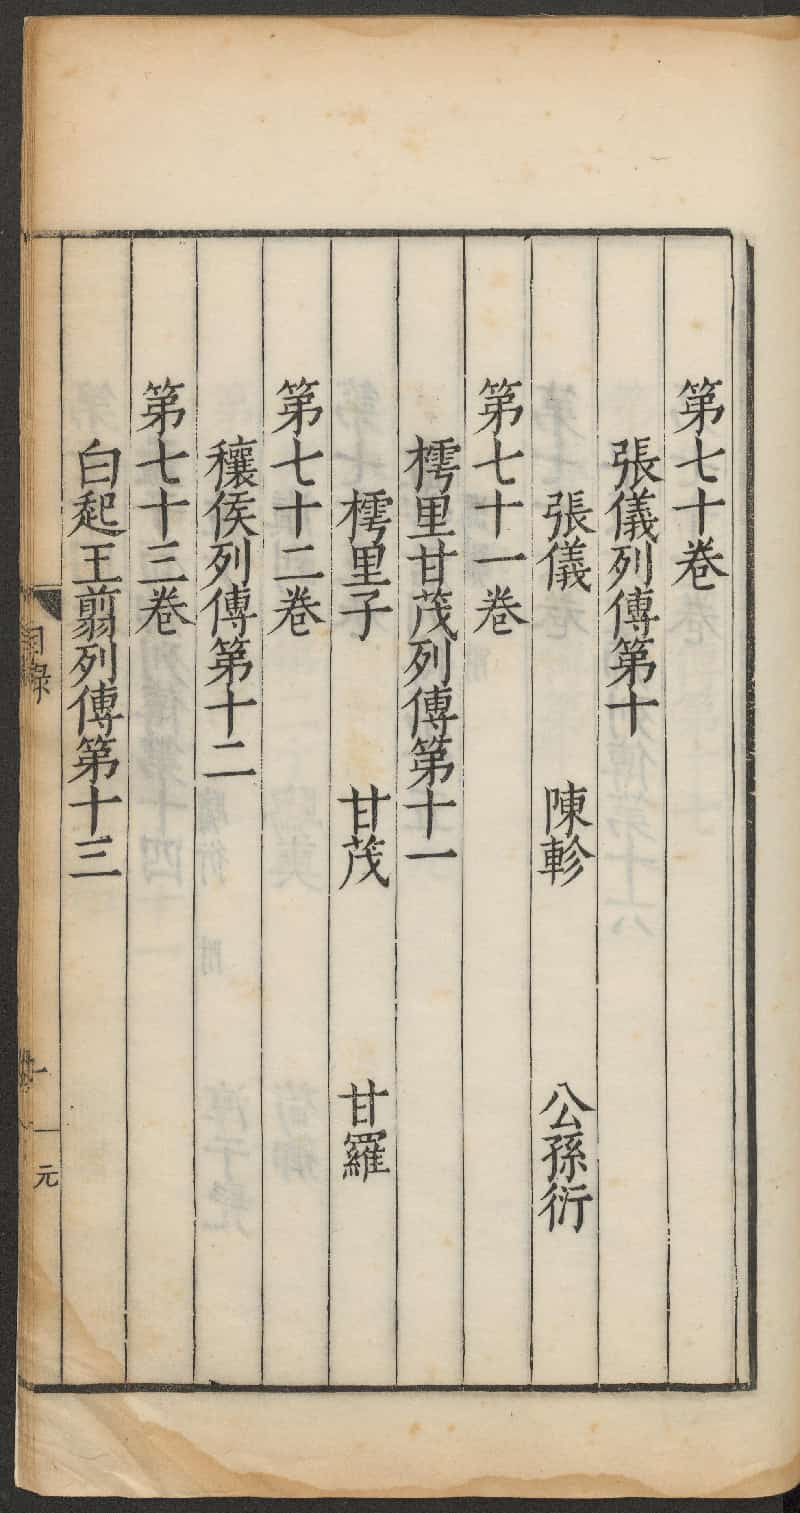 第七十卷
張儀列傳第十
張儀 陳軫 公孫衍
第七十一卷
樗里甘茂列傳第十一
樗里子 甘茂 甘羅
第七十二卷
穰侯列傳第十二
第七十三卷
白起王翦列傳第十三
目錄
元